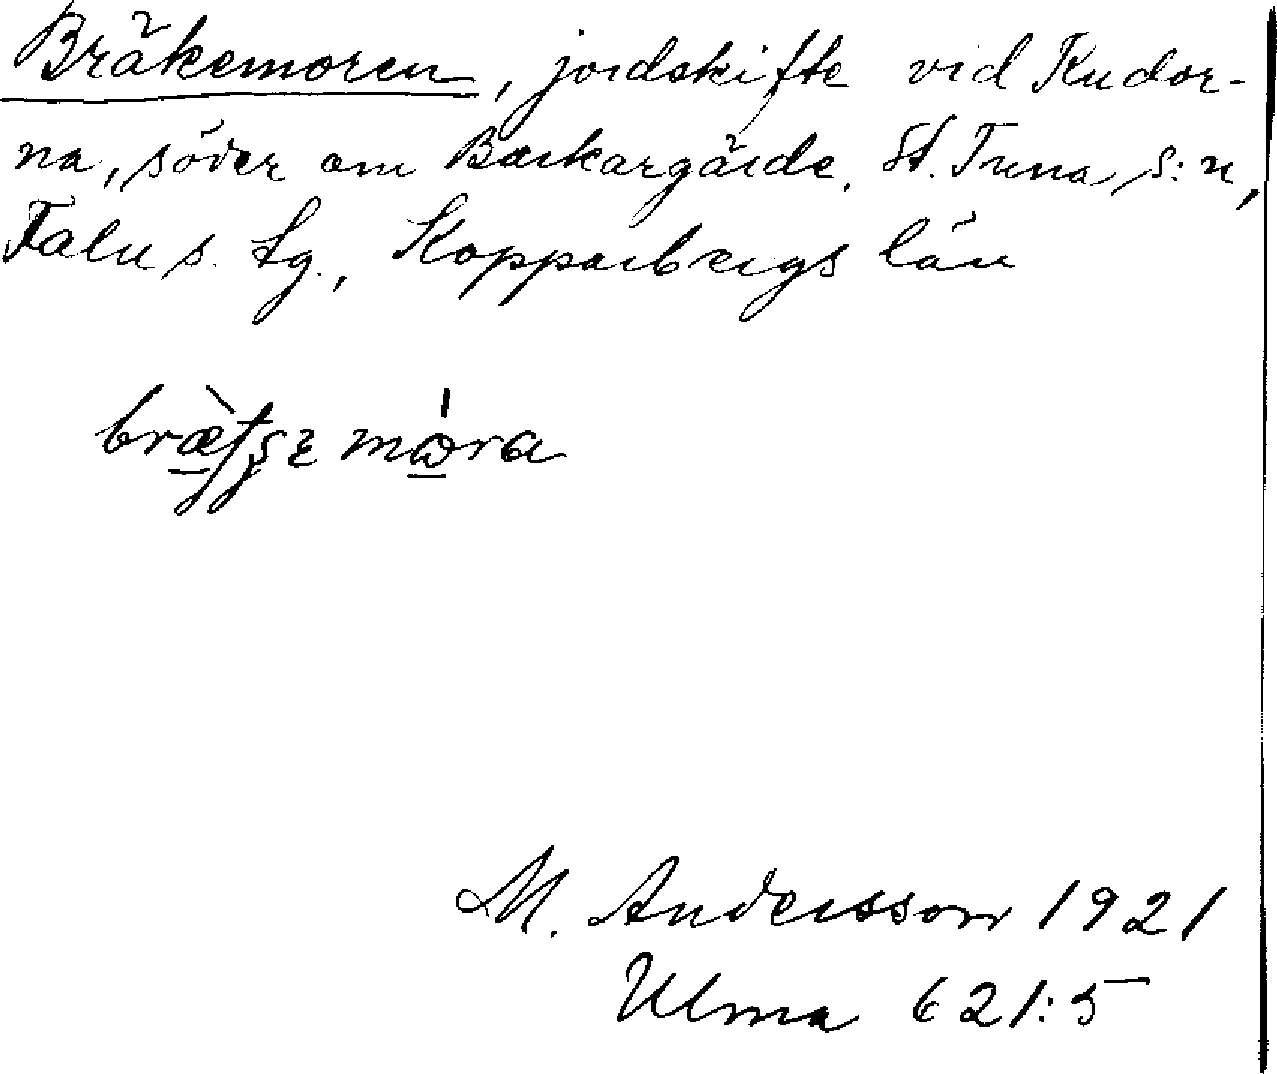 Bräkemoren, jordskifte vid Kudor-
na, söder om Barkargärde. St. Tuna s:n,
Falu s. tg., Kopparbergs län
M. Andersson 1921
Ulma 621:5